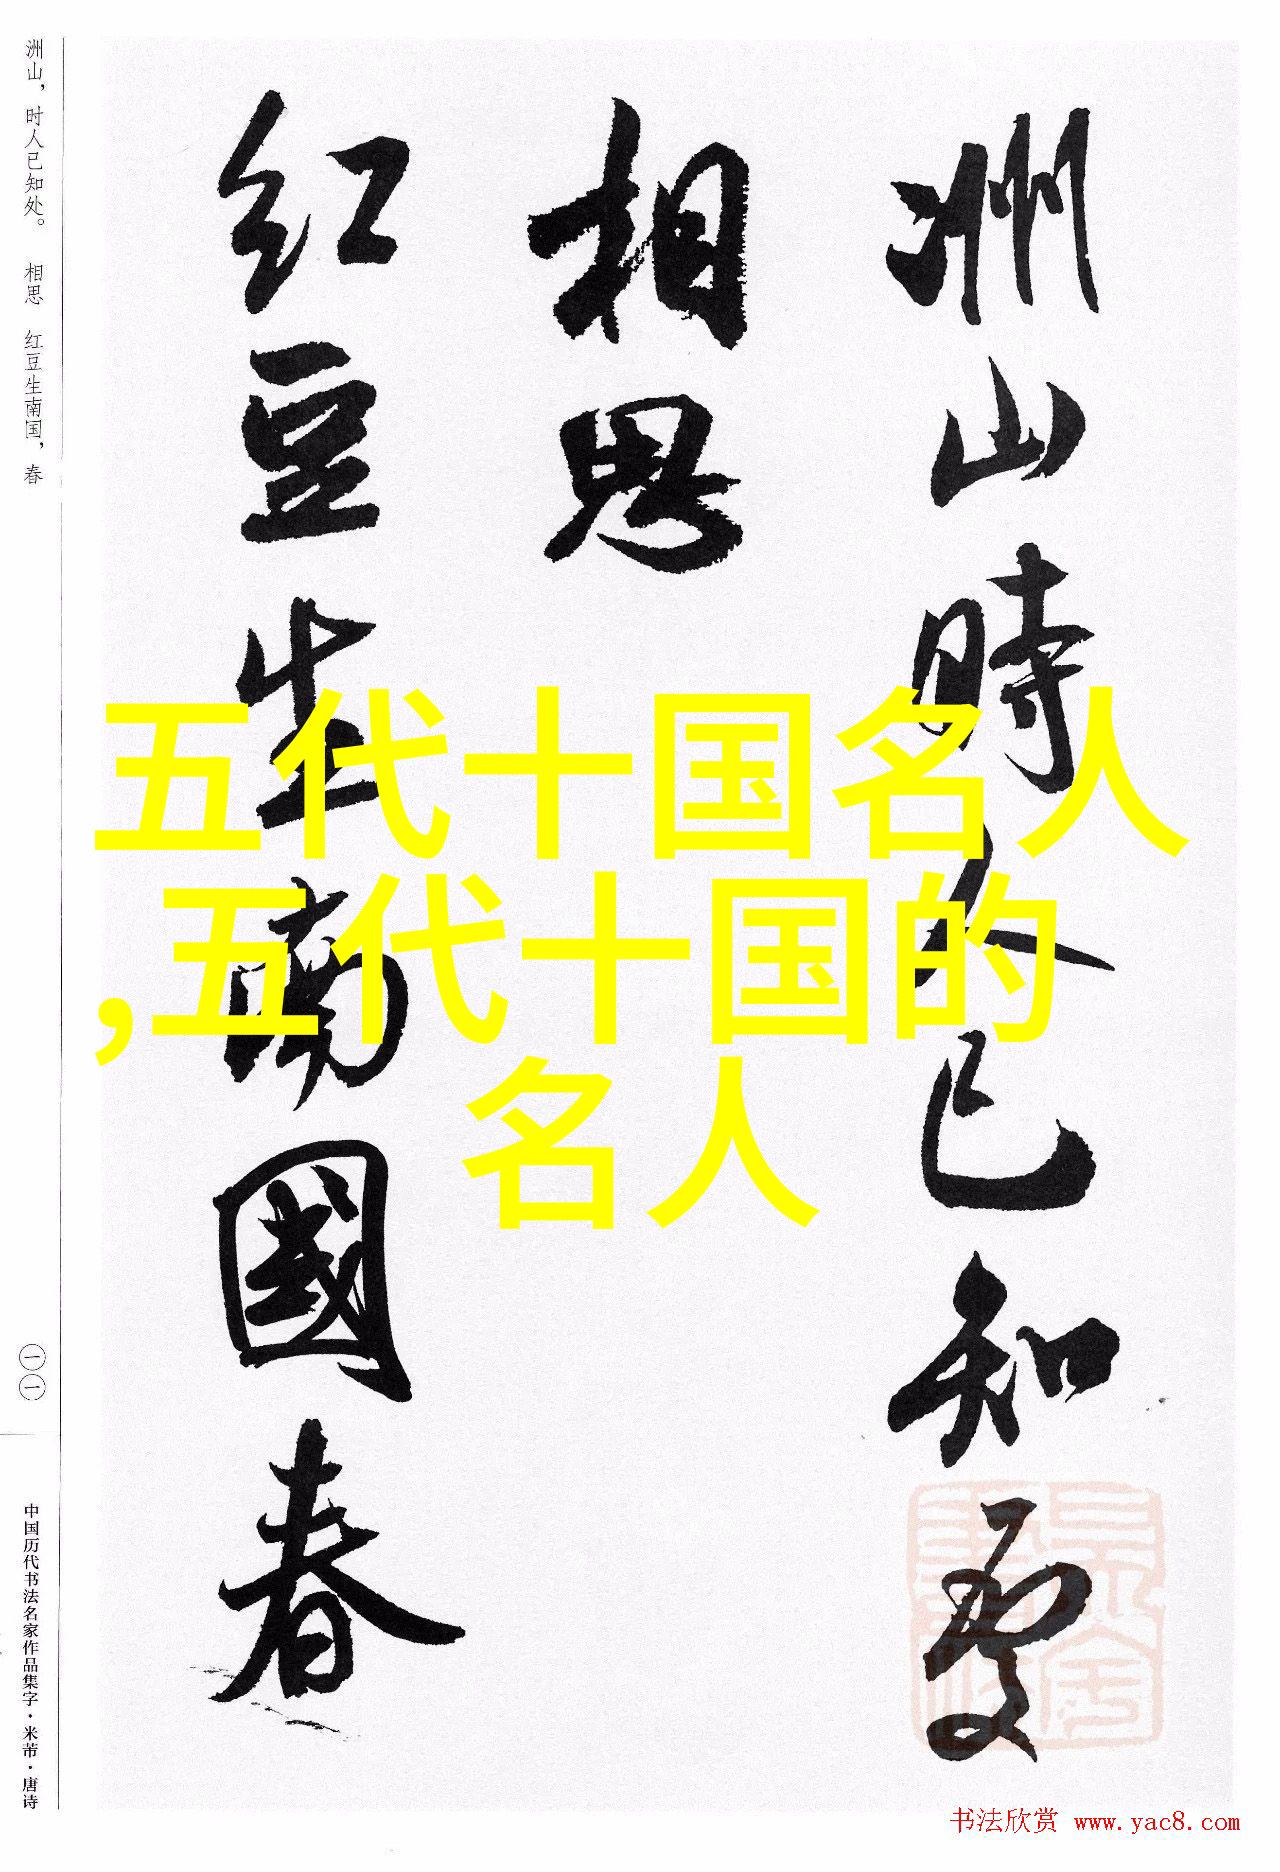 洲山時人已知處
相思
红豆生南國春
五代十国名人
,五代十国的
名人
洲山，时人已知处。 相思 红豆生南国，春
一一
中国历代书法名家作品集字·米芾·唐诗
书法欣赏 www.yac8.com